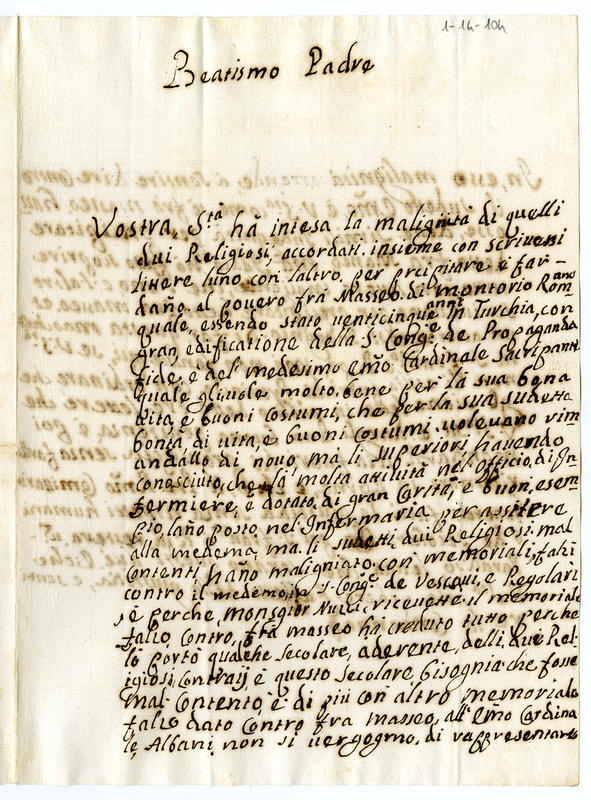 1-14-104
Beatismo Padre
Vostra, S.tà hà intesa la malignità di quelli
dui Religiosi, accordati, insieme con scriversi
littere luno con laltro, per precipitare è far
daño al povero frà Masseo di montorio Romano
quale, essendo stato venticinque anni in Turchia, con
gran, edificatione della S. Cong.e de Propaganda
fide, è del medesimo emo Cardinale Sacripante
quale gli vole molto bene per la sua bona
vita, è buoni costumi, che per la sua sudetta
bontà, di vita, è buoni costumi volevano rim
andallo di novo, mà li superiori havendo
conosciuto, che hà molta attività nel officio, di In
fermiere, è dotato, di gran Carità, è buon, esem
pio, lano posto, nel Infermaria per assistere
alla medema, ma li sudetti dui Religiosi mal
Contenti hano malignato, con memoriali, falzi
contro il medemo, in S. Cong.e de Vescovi, e Regolari
sè perche, monsgior Nuzzi, ricevette il memoriale
falzo, contro, frà masseo hà creduto tutto perche
lo portò qualche secolare, aderente, delli, dui Rel
igiosi Contrarij, è questo secolare bisognia che fosse
mal Contento, è di più con altro memoriale
falzo dato Contro frà masseo, all' emo Cardina
le, Albani, non si vergogrno, di rappresentare